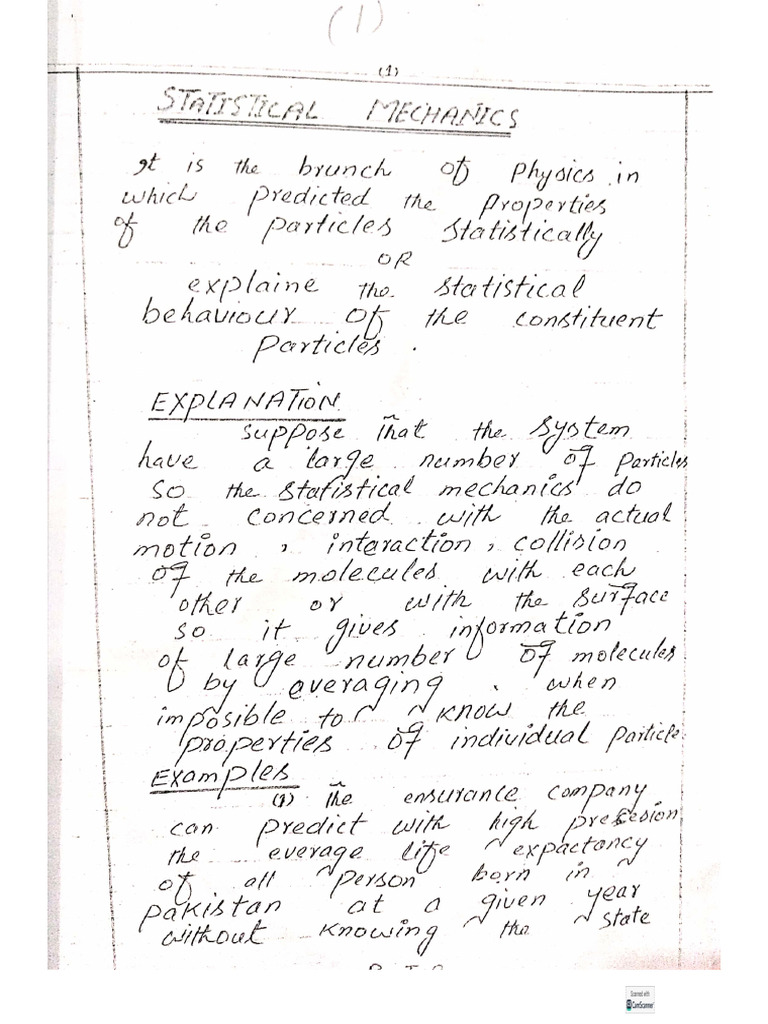 (1)
(1)
STATISTICAL MECHANICS
It is the brunch of Physics in
which predicted the Properties
of the particles statistically
OR
explaine the statistical
behaviour of the constituent
Particles .
EXPLANATION
Suppose that the system
have a large number of particles
so the statistical mechanics do
not concerned with the actual
motion , interaction , collision
of the molecules with each
other or with the surface
so it gives information
of large number of molecules
by averaging . when
imposible to know the
properties of individual particle
Examples
(1) The ensurance company
can predict with high precesion
the everage life expactancy
of all person born in
pakistan at a given year
without knowing the state
Scanned with
CamScanner